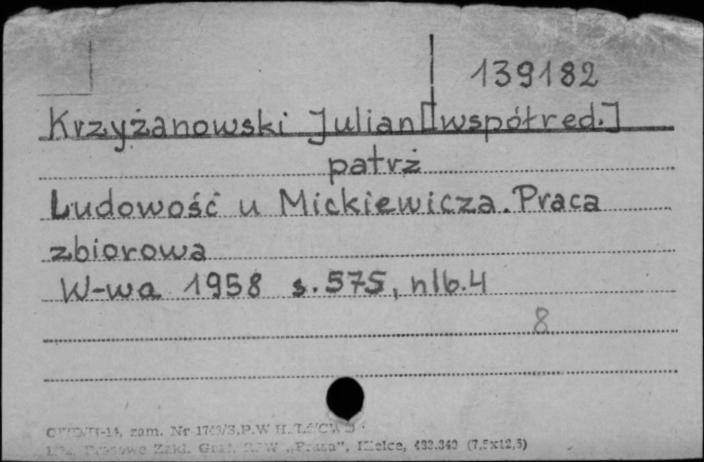 139182
Krzyżanowski Julian [współred.]
patrz
Ludowość u Mickiewicza. Praca
zbiorowa
W-wa 1958 s. 575, nlb. 4
8
zam. Nr P.W
Zakł. Graf. „Prasa”, Kielce, (7,5x12,5)